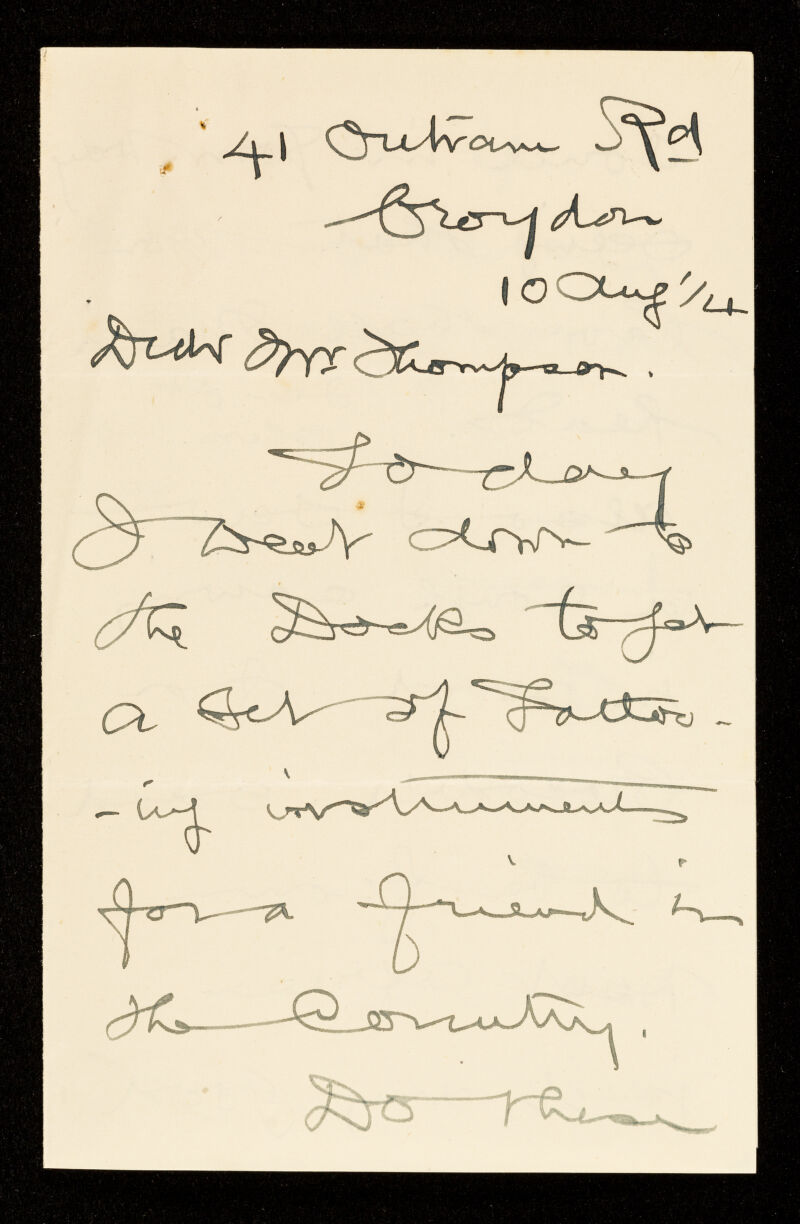 41 Outram Rd
Croydon
10 Aug '14
Dear Mr Thompson.
To day
I went down to
the Docks to get
a Set of Tattoo-
-ing instruments
for a friend in
the Country.
Do these